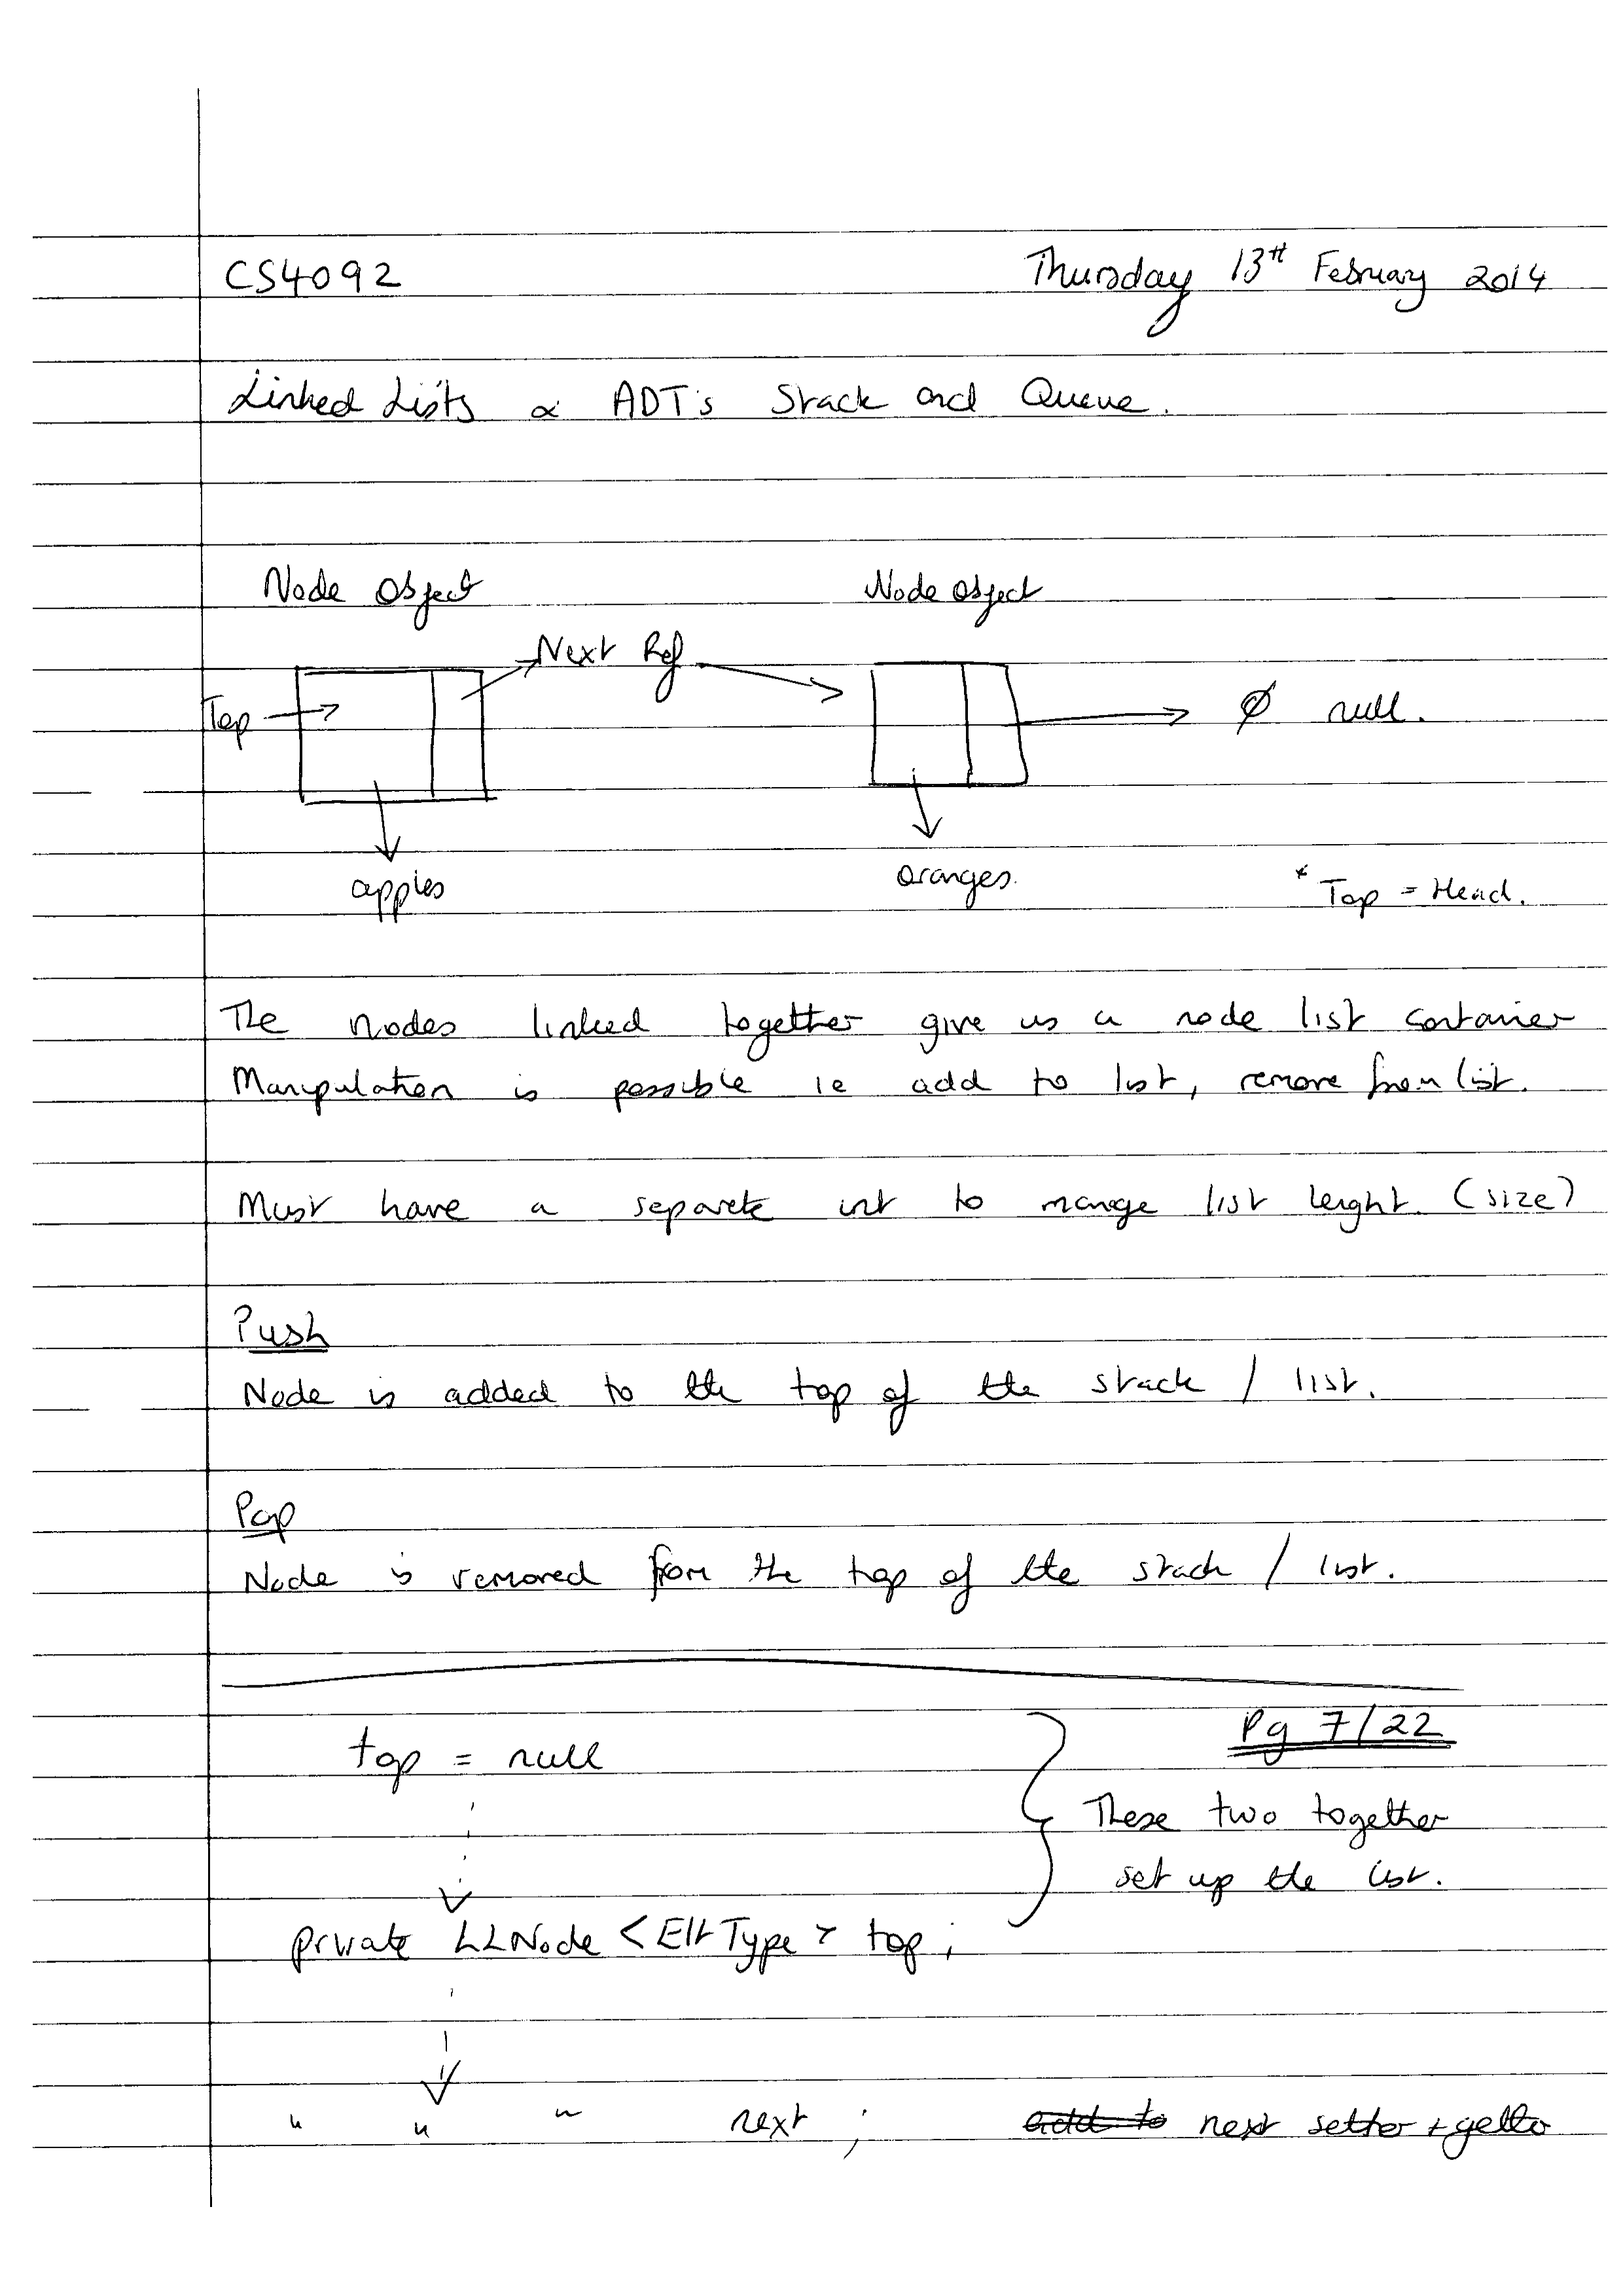 CS4092 Thursday 13th February 2014
Linked Lists & ADT's Stack and Queue.
Node Object Node Object
Next Ref
Top Ø null.
apples oranges.
* Top = Head.
The nodes linked together give us a node list container
Manipulation is possible ie add to list, remove from list.
Must have a separate int to mange list lenght (size)
Push
Node is added to the top of the stack / list.
Pop
Node is removed from the top of the stack / list.
Pg 7/22
top = null
These two together
set up the list.
private LLNode <EltType> top;
" " " next ; add to next setter + getter